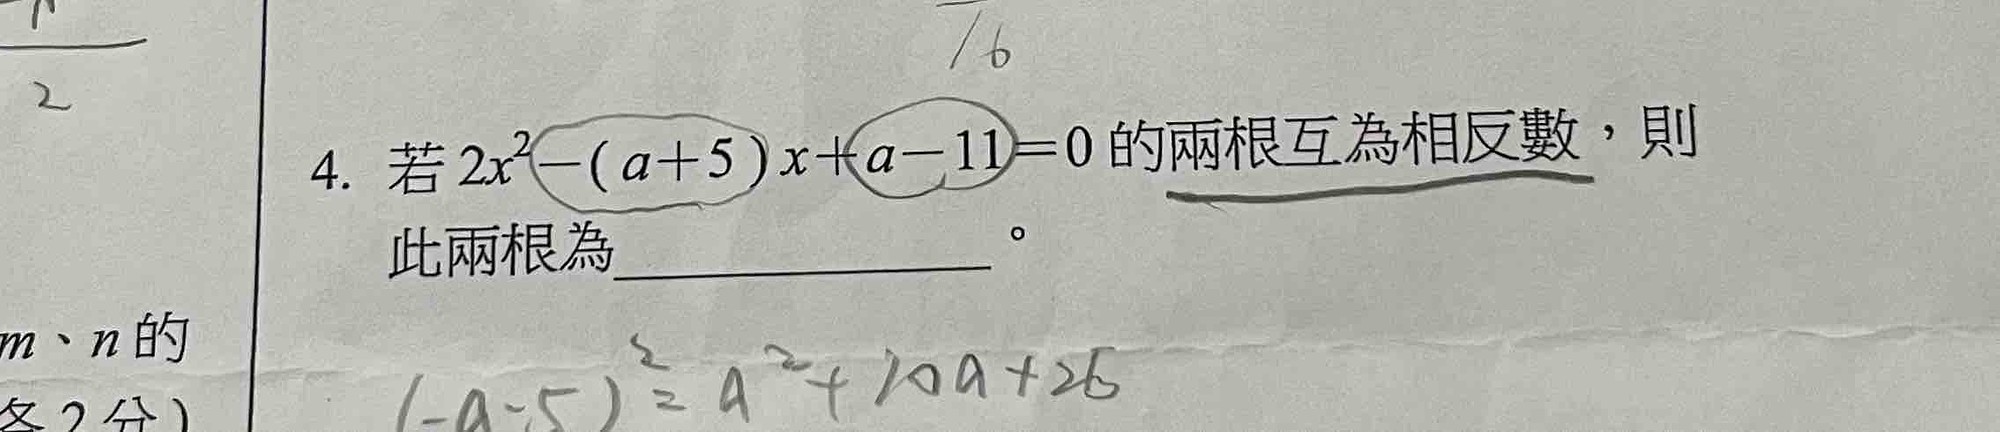 2
16
4. 若 2x²－(a＋5)x＋a－11＝0 的兩根互為相反數，則
此兩根為＿＿＿＿＿＿。
m、n 的
各 2 分）
(-a-5)²=a²+10a+25